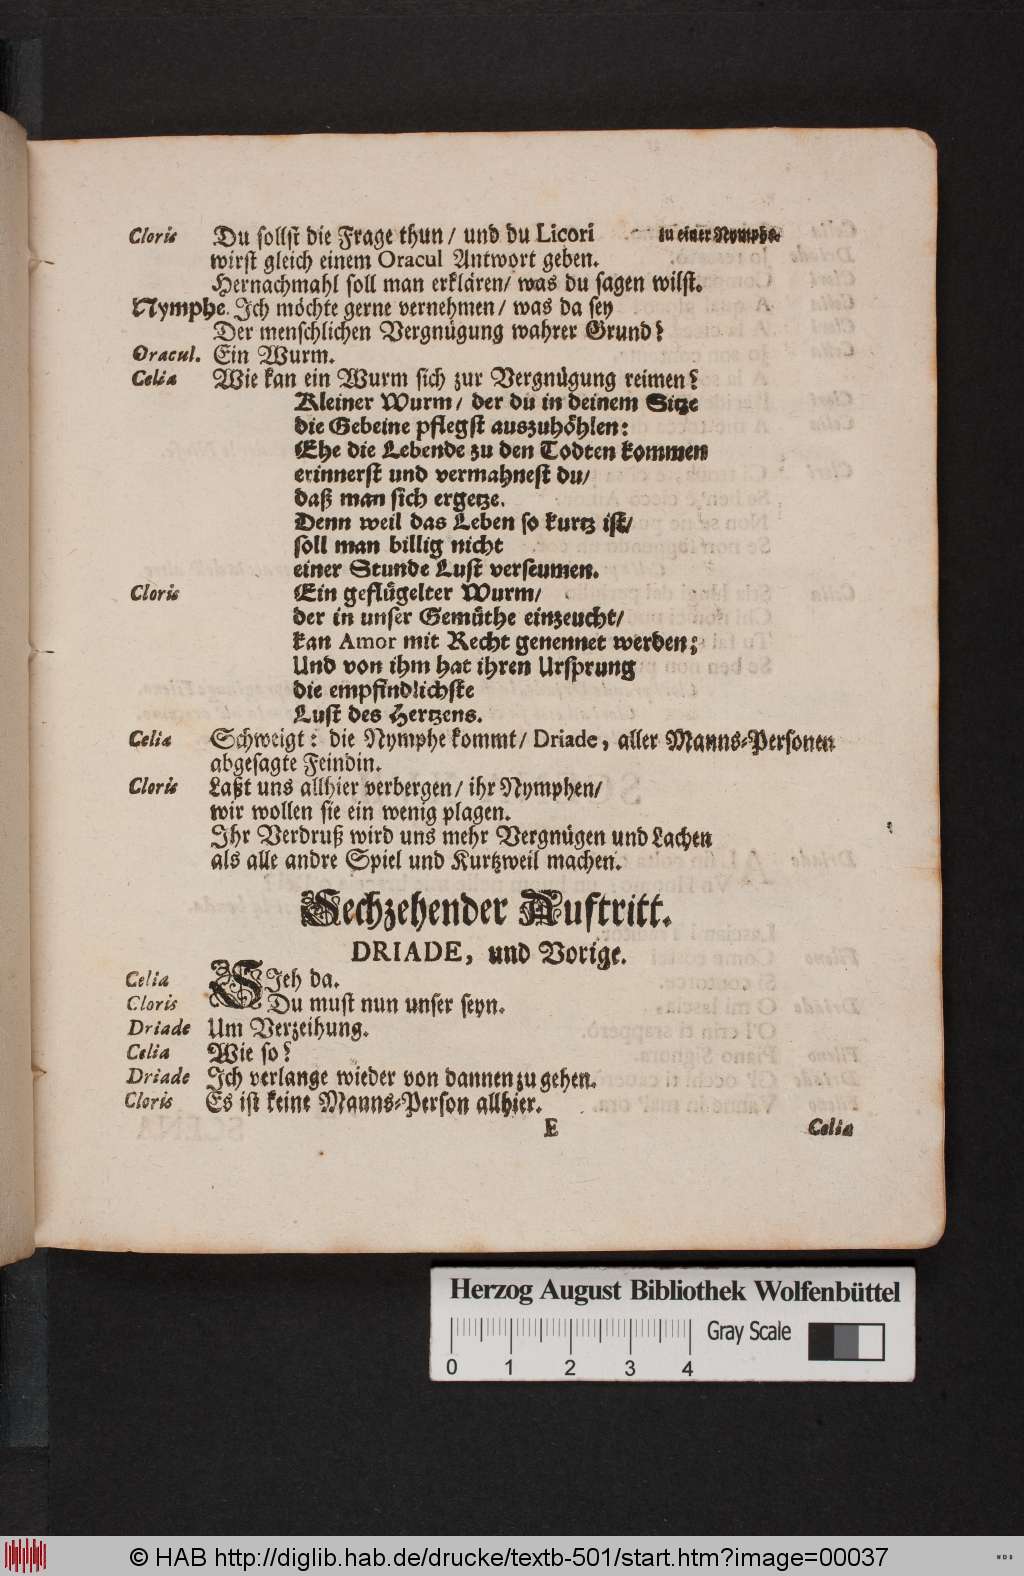 Cloris Du sollst die Frage thun/ und du Licori zu einer Nymphe.
wirst gleich einem Oracul Antwort geben.
Hernachmahl soll man erklären/ was du sagen wilst.
Nymphe. Ich möchte gerne vernehmen/ was da sey
Der menschlichen Vergnügung wahrer Grund?
Oracul. Ein Wurm.
Celia Wie kan ein Wurm sich zur Vergnügung reimen?
Kleiner Wurm/ der du in deinem Sitze
die Gebeine pflegst auszuhöhlen:
Ehe die Lebende zu den Todten kommen
erinnerst und vermahnest du/
daß man sich ergetze.
Denn weil das Leben so kurtz ist/
soll man billig nicht
einer Stunde Lust verseumen.
Cloris Ein geflügelter Wurm/
der in unser Gemüthe einzeucht/
kan Amor mit Recht genennet werden;
Und von ihm hat ihren Ursprung
die empfindlichste
Lust des Hertzens.
Celia Schweigt: die Nymphe kommt/ Driade, aller Manns-Personen
abgesagte Feindin.
Cloris Laßt uns allhier verbergen/ ihr Nymphen/
wir wollen sie ein wenig plagen.
Ihr Verdruß wird uns mehr Vergnügen und Lachen
als alle andre Spiel und Kurtzweil machen.
Sechzehender Auftritt.
DRIADE, und Vorige.
Celia SJeh da.
Cloris Du must nun unser seyn.
Driade Um Verzeihung.
Celia Wie so?
Driade Ich verlange wieder von dannen zu gehen.
Cloris Es ist keine Manns-Person allhier.
E Celia
Herzog August Bibliothek Wolfenbüttel
0 1 2 3 4 Gray Scale
© HAB http://diglib.hab.de/drucke/textb-501/start.htm?image=00037